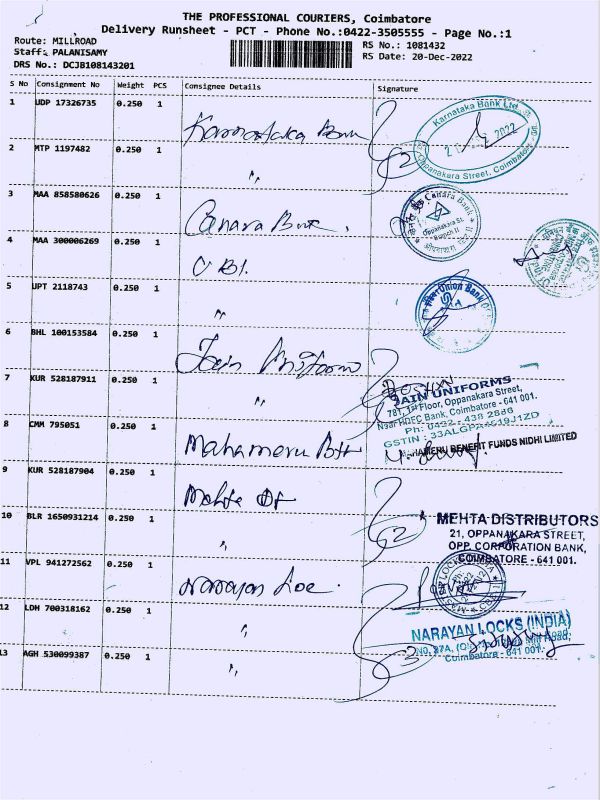 THE PROFESSIONAL COURIERS, Coimbatore
Delivery Runsheet - PCT - Phone No.:0422-3505555 - Page No.:1
Route: MILLROAD
Staff: PALANISAMY
DRS No.: DCJB108143201
RS No.: 1081432
RS Date: 20-Dec-2022
S No Consignment No Weight PCS Consignee Details Signature
1 UDP 17326735 0.250 1 Karnataka Bank
Karnataka Bank Ltd.
2022
Oppanakara Street, Coimbatore
2 MTP 1197482 0.250 1 〃
3 MAA 858580626 0.250 1 Canara Bank.
Canara Bank
Oppanakara St.
Branch II
4 MAA 300006269 0.250 1 UBI.
5 UPT 2118743 0.250 1 〃
Union Bank
6 BHL 100153584 0.250 1 Jain Uniforms
7 KUR 528187911 0.250 1 〃
JAIN UNIFORMS
781, 1st Floor, Oppanakara Street,
Near HDFC Bank, Coimbatore - 641 001.
8 CMM 795051 0.250 1 Mahameru
BENEFIT FUNDS NIDHI LIMITED
9 KUR 528187904 0.250 1 Mehta
10 BLR 1650931214 0.250 1 〃
MEHTA DISTRIBUTORS
21, OPPANAKARA STREET,
OPP. CORPORATION BANK,
COIMBATORE - 641 001.
11 VPL 941272562 0.250 1 Narayan Loc.
12 LDH 700318162 0.250 1 〃
NARAYAN LOCKS (INDIA)
Coimbatore - 641 001.
13 AGH 530099387 0.250 1 〃